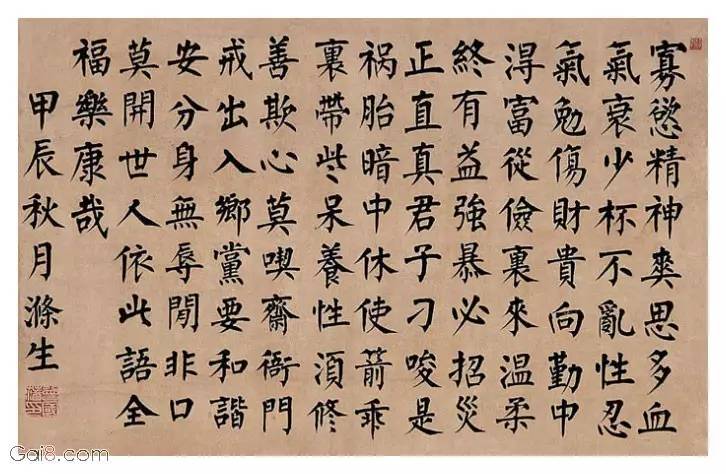 寡慾精神爽思多血
氣衰少杯不亂性忍
氣勉傷財貴向勤中
淂富從儉裏來温柔
終有益強暴必招災
正直真君子刁唆是
祸胎暗中休使箭乖
裏帶些呆養性湏修
善欺心莫喫齋衙門
戒出入鄉黨要和諧
安分身無辱閒非口
莫開世人依此語全
福樂康哉
甲辰秋月滌生
Gai8.com